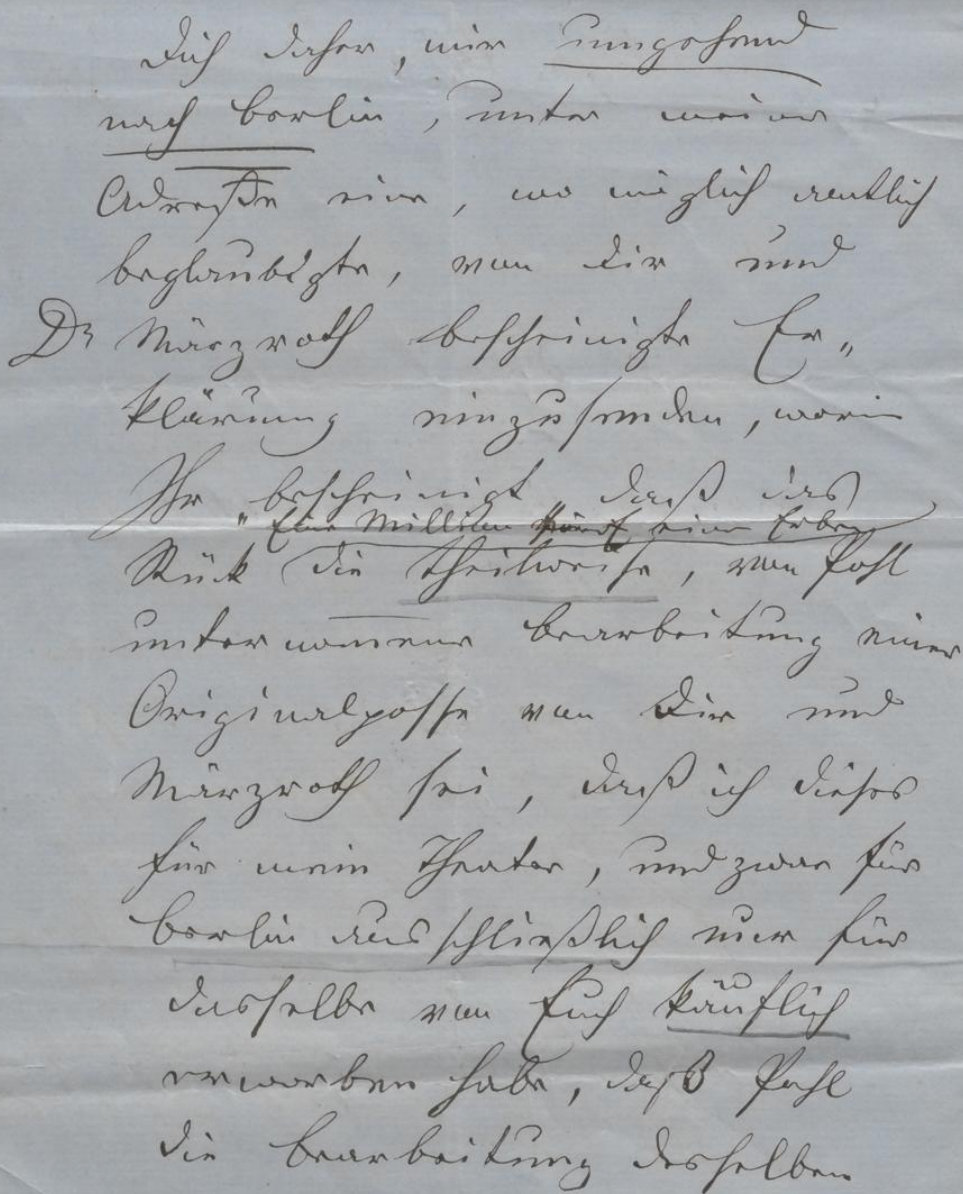 Dich daher, mir umgehend
nach Berlin, unter meiner
Adresse eine, wo möglich amtlich
beglaubigte, von Dir und
Dr Märzroth bescheinigte Er„
klärung einzusenden, worin
Ihr bescheinigt, daß das
„Eine Million für einen Erben
Stück die theilweise, von Pohl
unternommene Bearbeitung einer
Originalposse von Dir und
Märzroth sei, daß ich dieses
für mein Theater, und zwar für
Berlin ausschließlich nur für
dasselbe von Euch käuflich
erworben habe, daß Pohl
die Bearbeitung desselben